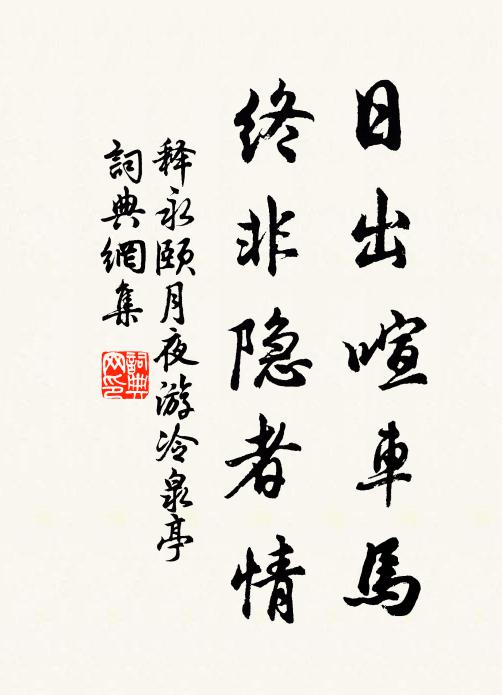 日出喧車馬
终非隐者情
释永頤月夜游冷泉亭
詞典網集
詞典
网印